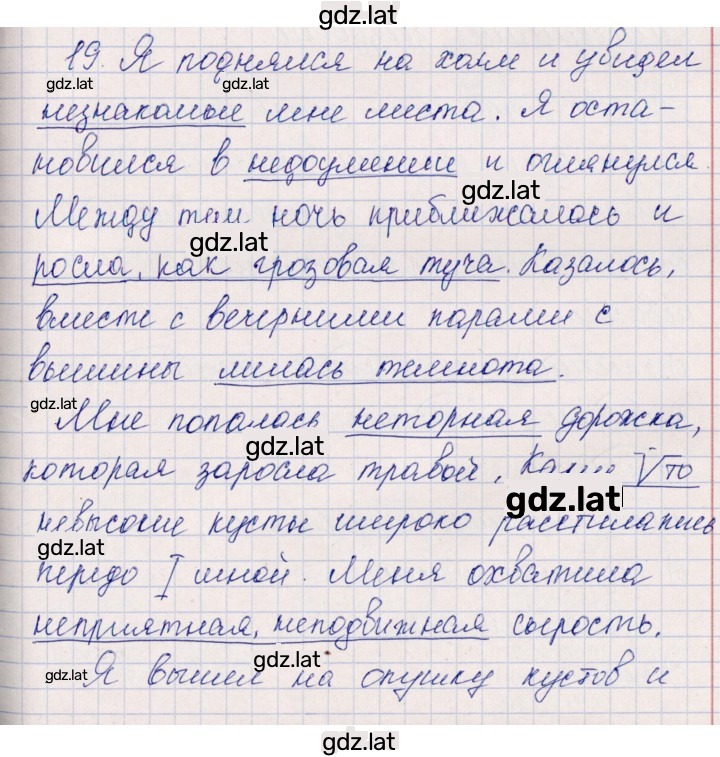 gdz.lat
19. Я поднялся на холм и увидел
gdz.lat gdz.lat
незнакомые мне места. Я оста-
новился в недоумении и оглянулся.
gdz.lat
Между тем ночь приближалась и
gdz.lat
росла, как грозовая туча. Казалось,
вместе с вечерними парами с
вышины лилась темнота.
gdz.lat
Мне попалась неторная дорожка,
gdz.lat
которая заросла травой. то
gdz.lat
невысокие кусты широко расстилались
gdz.lat
передо мной. Меня охватила
неприятная, неподвижная сырость.
gdz.lat
gdz.lat
Я вышел на опушку кустов и
gdz.lat